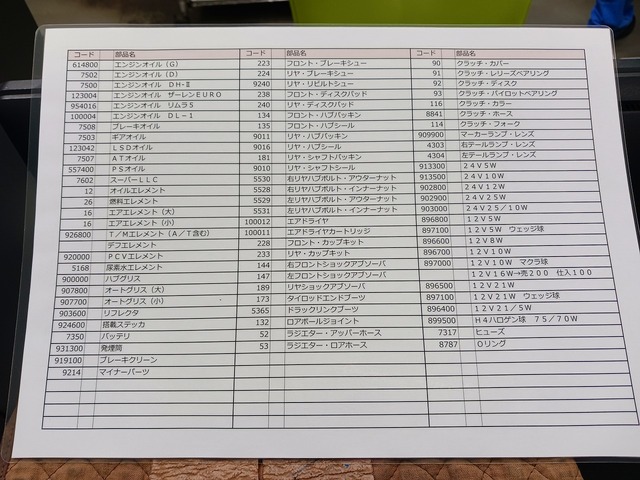 コード 部品名
614800 エンジンオイル（G）
7502 エンジンオイル（D）
7500 エンジンオイル　DH-Ⅱ
123004 エンジンオイル　ザーレンEURO
954016 エンジンオイル　リムラS
100004 エンジンオイル　DL-1
7508 ブレーキオイル
7503 ギアオイル
123042 LSDオイル
7507 ATオイル
557400 PSオイル
7602 スーパーLLC
12 オイルエレメント
26 燃料エレメント
16 エアエレメント（大）
16 エアエレメント（小）
926800 T/Mエレメント（A/T含む）
デフエレメント
920000 PCVエレメント
5168 尿素水エレメント
900000 ハブグリス
907800 オートグリス（大）
907700 オートグリス（小）
903600 リフレクタ
924600 搭載ステッカ
7350 バッテリ
931300 発煙筒
919100 ブレーキクリーン
9214 マイナーパーツ
コード 部品名
223 フロント・ブレーキシュー
224 リヤ・ブレーキシュー
9240 リヤ・リビルトシュー
238 フロント・ディスクパッド
240 リヤ・ディスクパッド
134 フロント・ハブパッキン
135 フロント・ハブシール
9011 リヤ・ハブパッキン
9016 リヤ・ハブシール
181 リヤ・シャフトパッキン
9010 リヤ・シャフトシール
5530 右リヤハブボルト・アウターナット
5528 右リヤハブボルト・インナーナット
5529 左リヤハブボルト・アウターナット
5531 左リヤハブボルト・インナーナット
100012 エアドライヤ
100011 エアドライヤカートリッジ
228 フロント・カップキット
233 リヤ・カップキット
144 右フロントショックアブソーバ
147 左フロントショックアブソーバ
189 リヤショックアブソーバ
173 タイロッドエンドブーツ
5365 ドラックリンクブーツ
132 ロアボールジョイント
52 ラジエター・アッパーホース
53 ラジエター・ロアホース
コード 部品名
90 クラッチ・カバー
91 クラッチ・レリーズベアリング
92 クラッチ・ディスク
93 クラッチ・パイロットベアリング
116 クラッチ・カラー
8841 クラッチ・ホース
114 クラッチ・フォーク
909900 マーカーランプ・レンズ
4303 右テールランプ・レンズ
4304 左テールランプ・レンズ
913300 24V5W
913500 24V10W
902800 24V12W
902900 24V25W
903000 24V25/10W
896800 12V5W
897100 12V5W　ウェッジ球
896600 12V8W
896700 12V10W
897000 12V10W　マクラ球
12V16W→売200　仕入100
896500 12V21W
897100 12V21W　ウェッジ球
896400 12V21/5W
899500 H4ハロゲン球　75/70W
7317 ヒューズ
8787 Oリング